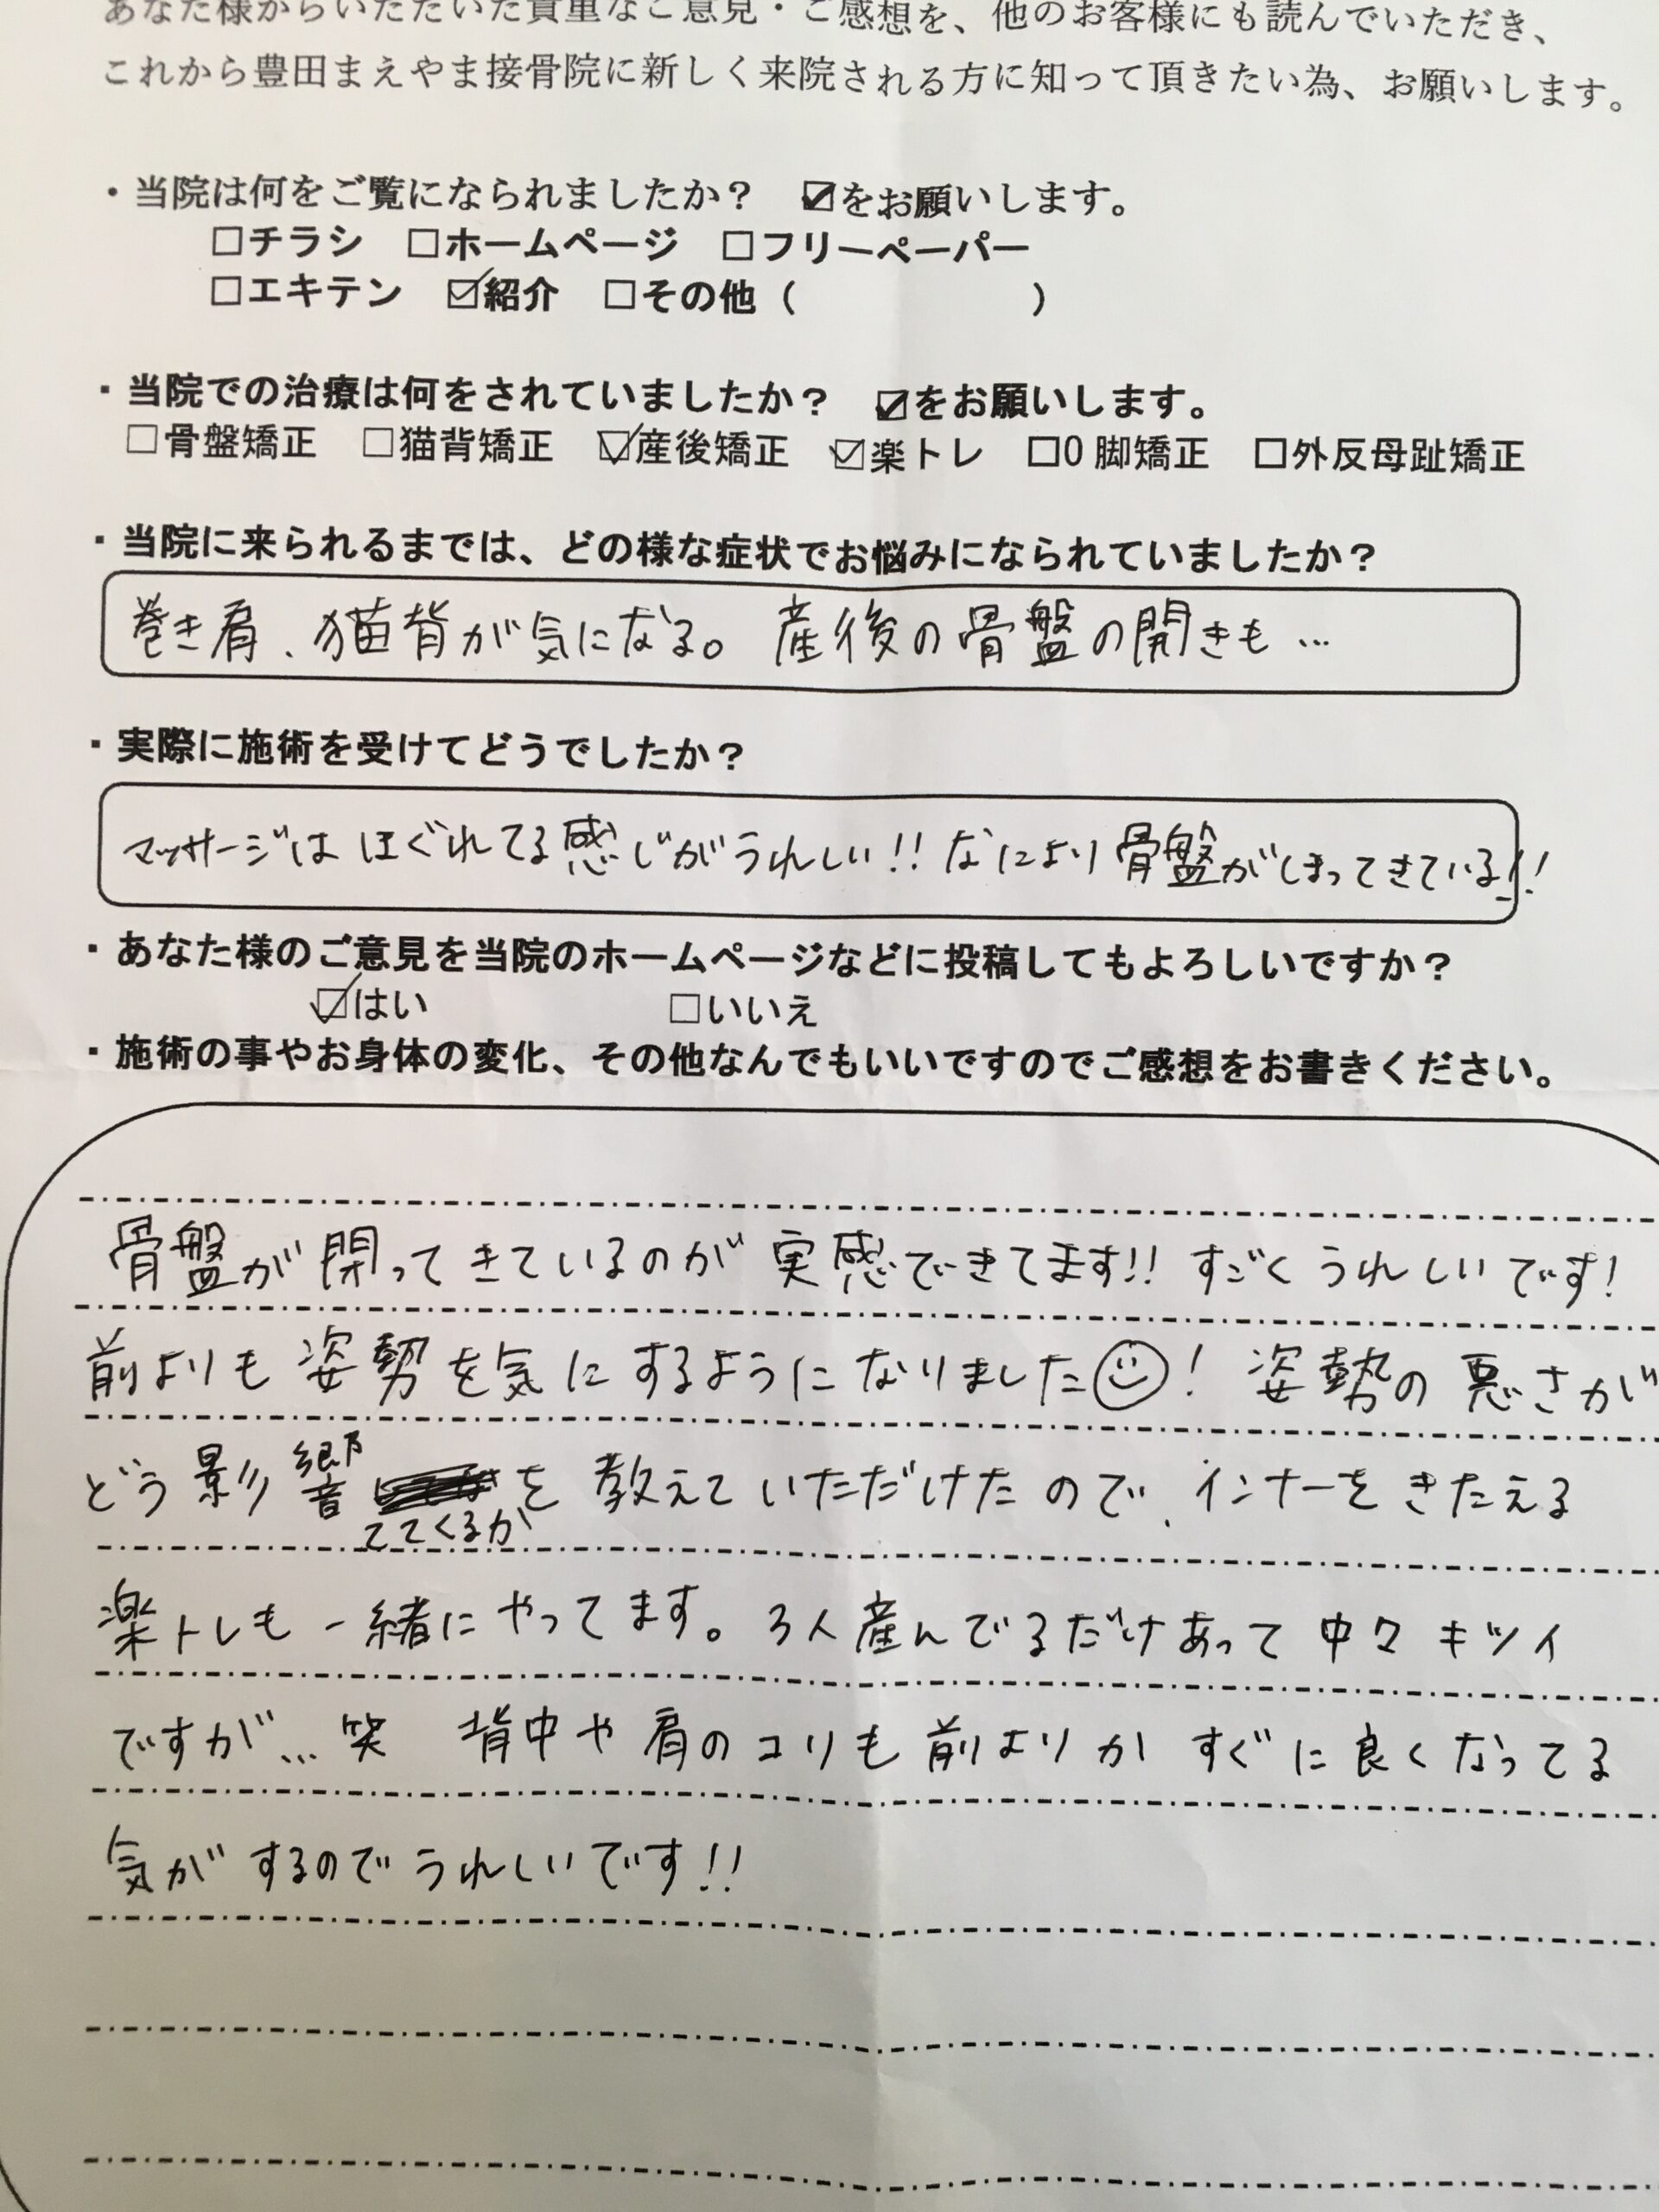 あなた様からいただいた貴重なご意見・ご感想を、他のお客様にも読んでいただき、
これから豊田まえやま接骨院に新しく来院される方に知って頂きたい為、お願いします。
・当院は何をご覧になられましたか？ ☑をお願いします。
□チラシ □ホームページ □フリーペーパー
□エキテン ☑紹介 □その他（ ）
・当院での治療は何をされていましたか？ ☑をお願いします。
□骨盤矯正 □猫背矯正 ☑産後矯正 ☑楽トレ □O脚矯正 □外反母趾矯正
・当院に来られるまでは、どの様な症状でお悩みになられていましたか？
巻き肩、猫背が気になる。産後の骨盤の開きも…
・実際に施術を受けてどうでしたか？
マッサージは ほぐれてる感じがうれしい!! なにより骨盤がしまってきている!!
・あなた様のご意見を当院のホームページなどに投稿してもよろしいですか？
☑はい □いいえ
・施術の事やお身体の変化、その他なんでもいいですのでご感想をお書きください。
骨盤が閉ってきているのが実感できてます!! すごくうれしいです!
前よりも姿勢を気にするようになりました☺! 姿勢の悪さが
どう影響 でてくるか を教えていただけたので、インナーをきたえる
楽トレも一緒にやってます。3人産んでるだけあって中々キツイ
ですが…笑 背中や肩のコリも前よりかすぐに良くなってる
気がするのでうれしいです!!